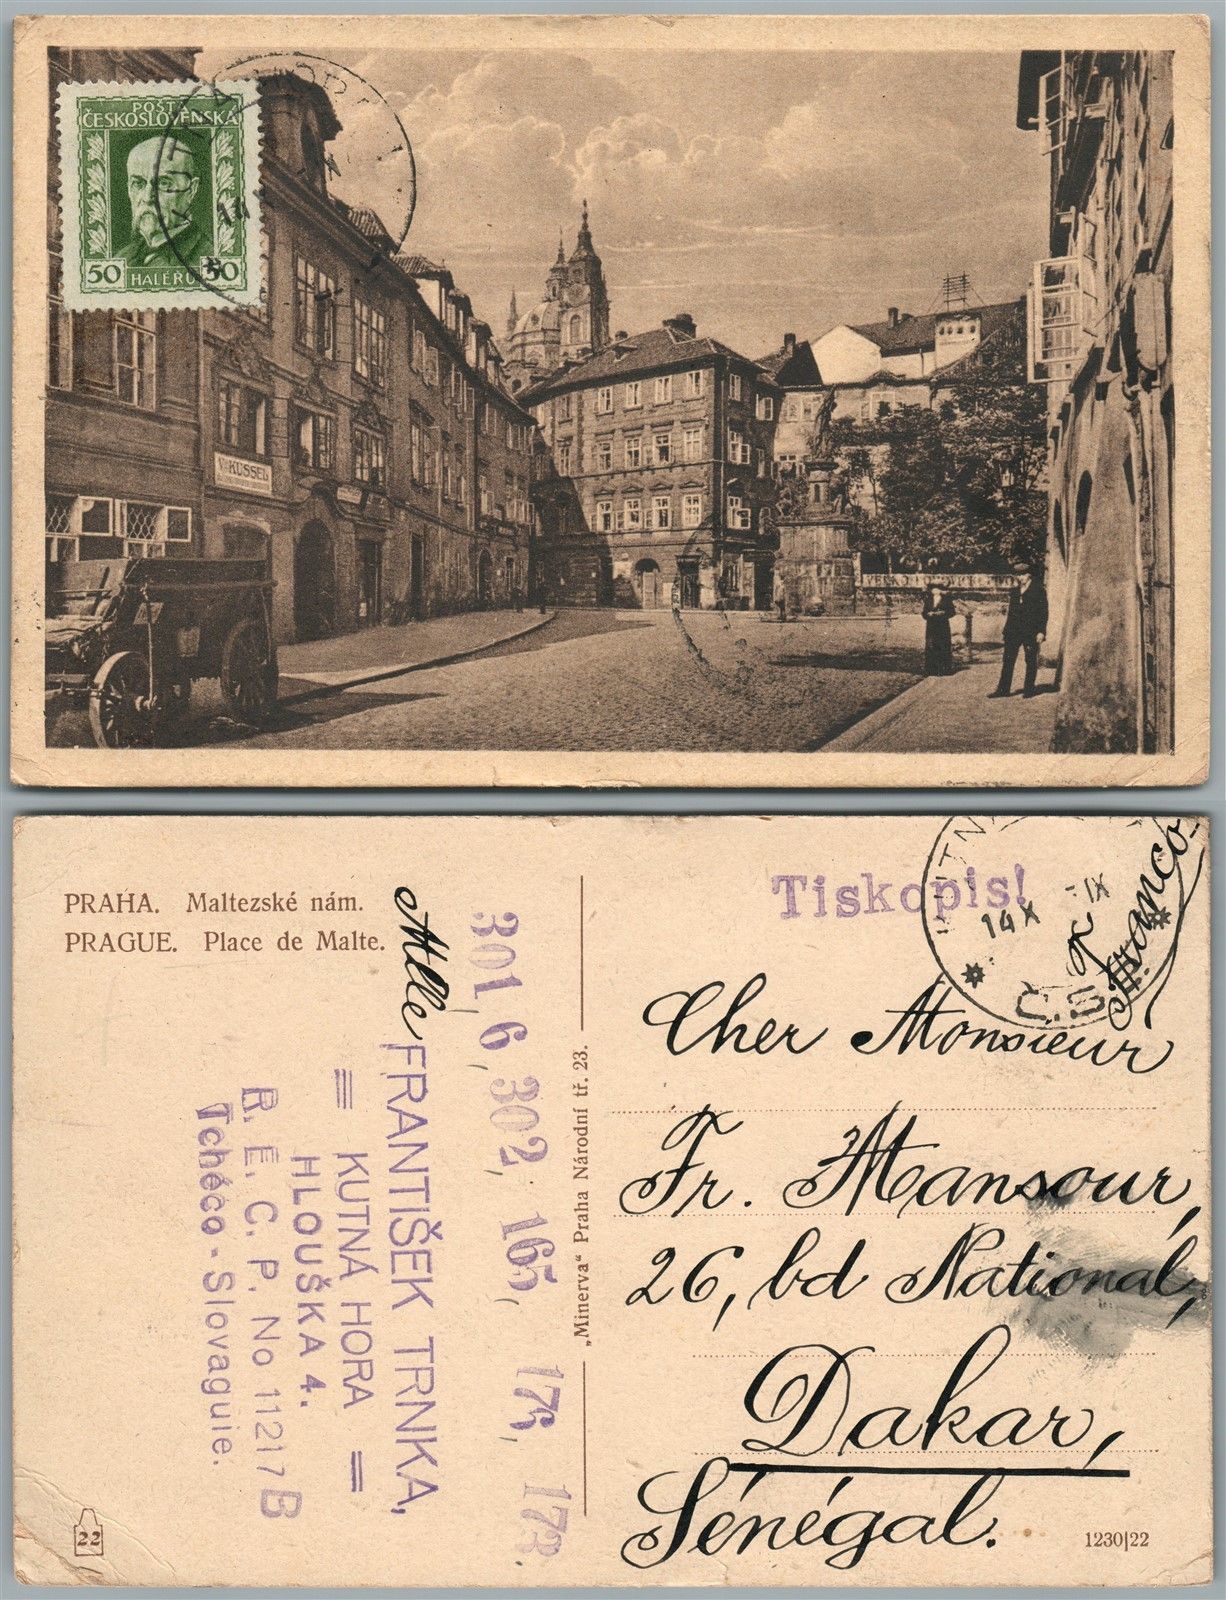 POŠTA
ČESKOSLOVENSKÁ
50 HALÉRŮ 50
KUTNÁ HORA 1
14 X
KÜSSEL
PRAHA. Maltezské nám.
PRAGUE. Place de Malte.
Mlle
FRANTIŠEK TRNKA,
= KUTNÁ HORA =
HLOUŠKA 4.
R. E. C. P. No 11217 B
Tchéco-Slovaquie.
301, 6, 302, 165, 176, 173.
„Minerva“ Praha Národní tř. 23.
22
Tiskopis!
KUTN
14 X
IX
Č.S.
Franco.
Cher Monsieur
Fr. Mansour,
26, bd National,
Dakar,
Sénégal.
1230|22